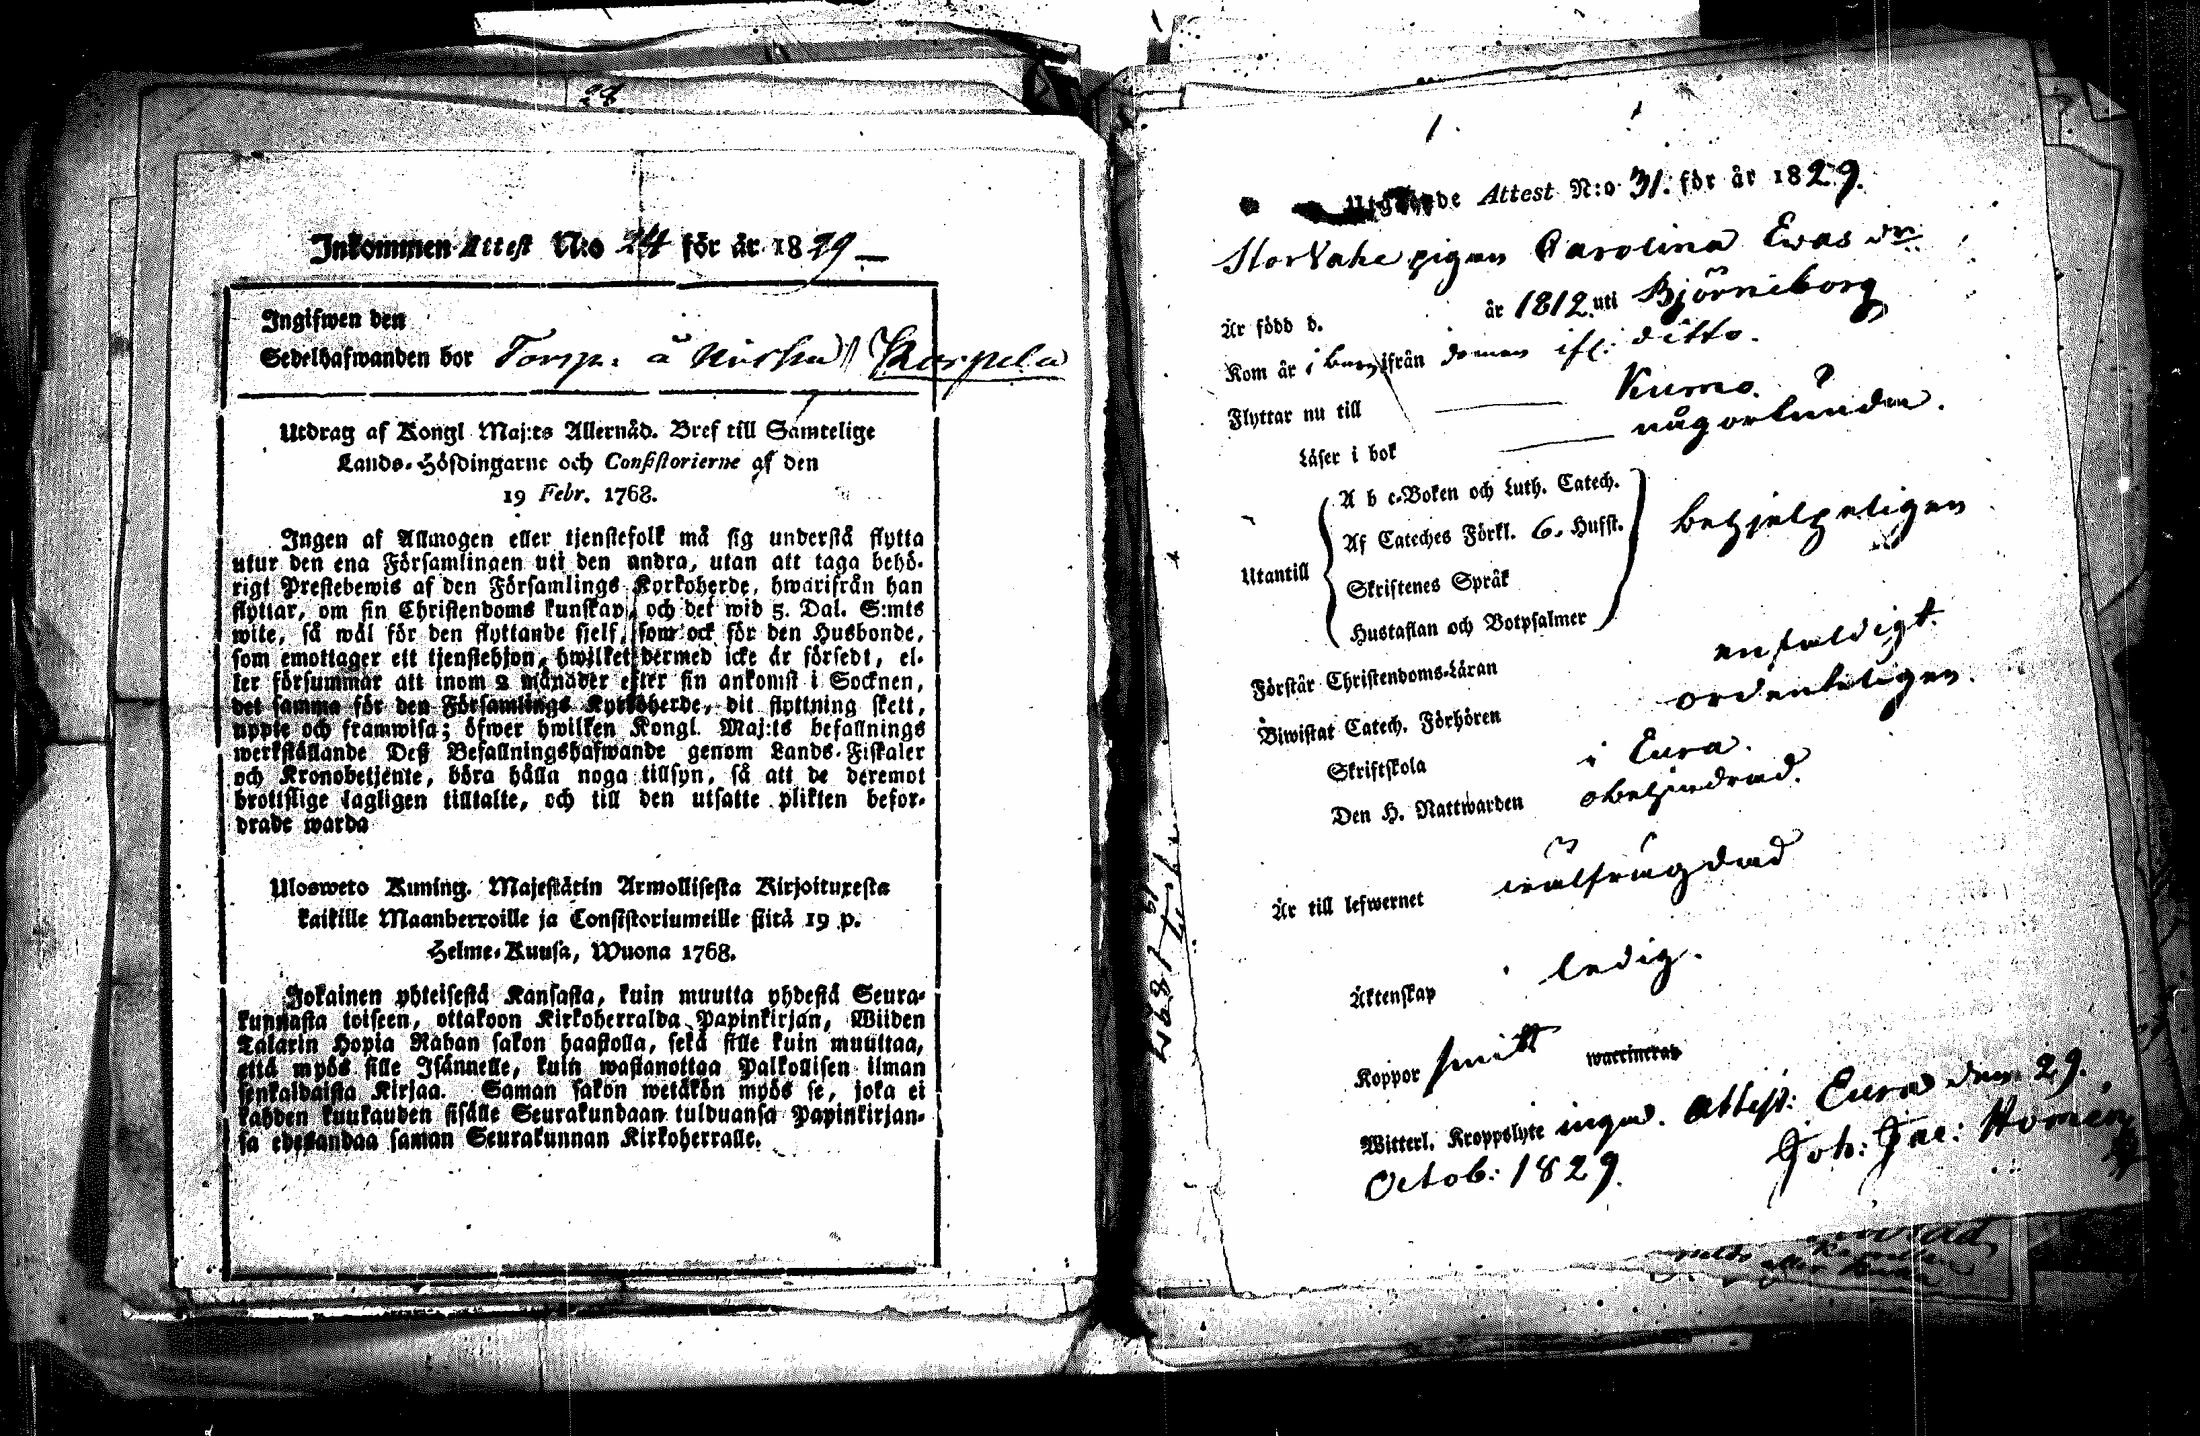 29
Inkommen Attest N:o 24 för år 1829
Ingifwen den
Sedelhafwanden bor Torp: å Korpela
Utdrag af Kongl Maj:ts Allernåd. Bref till Samtelige
Lands-Höfdingarne och Consistorierne af den
19 Febr. 1768.
Ingen af Allmogen eller tjenstefolk må sig understå flytta
utur den ena Församlingen uti den andra, utan att taga behö-
rigt Prestebewis af den Församlings Kyrkoherde, hwarifrån han
flyttar, om sin Christendoms kunskap, och det wid 5. Dal. S:mts
wite, så wäl för den flyttande sjelf, som ock för den Husbonde,
som emottager ett tjenstehjon, hwilket dermed icke är försedt, el-
ler försummar att inom 2 månader efter sin ankomst i Socknen,
det samma för den Församlings Kyrkoherde, dit flyttning skett,
uppte och framwisa; öfwer hwilken Kongl. Maj:ts befallnings
werkställande Deß Befallningshafwande genom Lands-Fiskaler
och Kronobetjente, böra hålla noga tillsyn, så att de deremot
brottslige lagligen tilltalte, och till den utsatte plikten befor-
drade warda
Ulosweto Kuning. Majestätin Armollisesta Kirjoituxesta
kaikille Maanherroille ja Consistoriumeille siitä 19 p.
Helme-Kuusa, Wuona 1768.
Jokainen yhteisestä Kansasta, kuin muutta yhdestä Seura-
kunnasta toiseen, ottakoon Kirkoherralda Papinkirjan, Wiiden
Talarin Hopia Rahan sakon haastolla, sekä sille kuin muuttaa,
että myös sille Isännelle, kuin wastanottaa Palkollisen ilman
senkaldaista Kirjaa. Saman sakon wetäkön myös se, joka ei
kahden kuukauden sisälle Seurakundaan tulduansa Papinkirjan-
sa edesandaa saman Seurakunnan Kirkoherralle.
Utgående Attest N:o 31. för år 1829.
pigan Carolina Ewas dr
Är född d. år 1812 uti Björneborg
Kom år ifrån ditto.
Flyttar nu till Kumo.
Läser i bok någorlunda.
A b c-Boken och Luth. Catech.
Af Cateches Förkl. 6. Hufst.
Utantill behjelpeligen
Skriftenes Språk
Hustaflan och Botpsalmer
Förstår Christendoms-Läran enfaldigt.
Biwistat Catech. Förhören ordenteligen.
Skriftskola i Eura.
Den H. Nattwarden obehindrad.
Är till lefwernet wälfrägdad
Äktenskap ledig.
Koppor haft waccinerad
Witterl. Kroppslyte inga. Attest: Eura den 29.
Octob: 1829. Joh: Jac: Homén